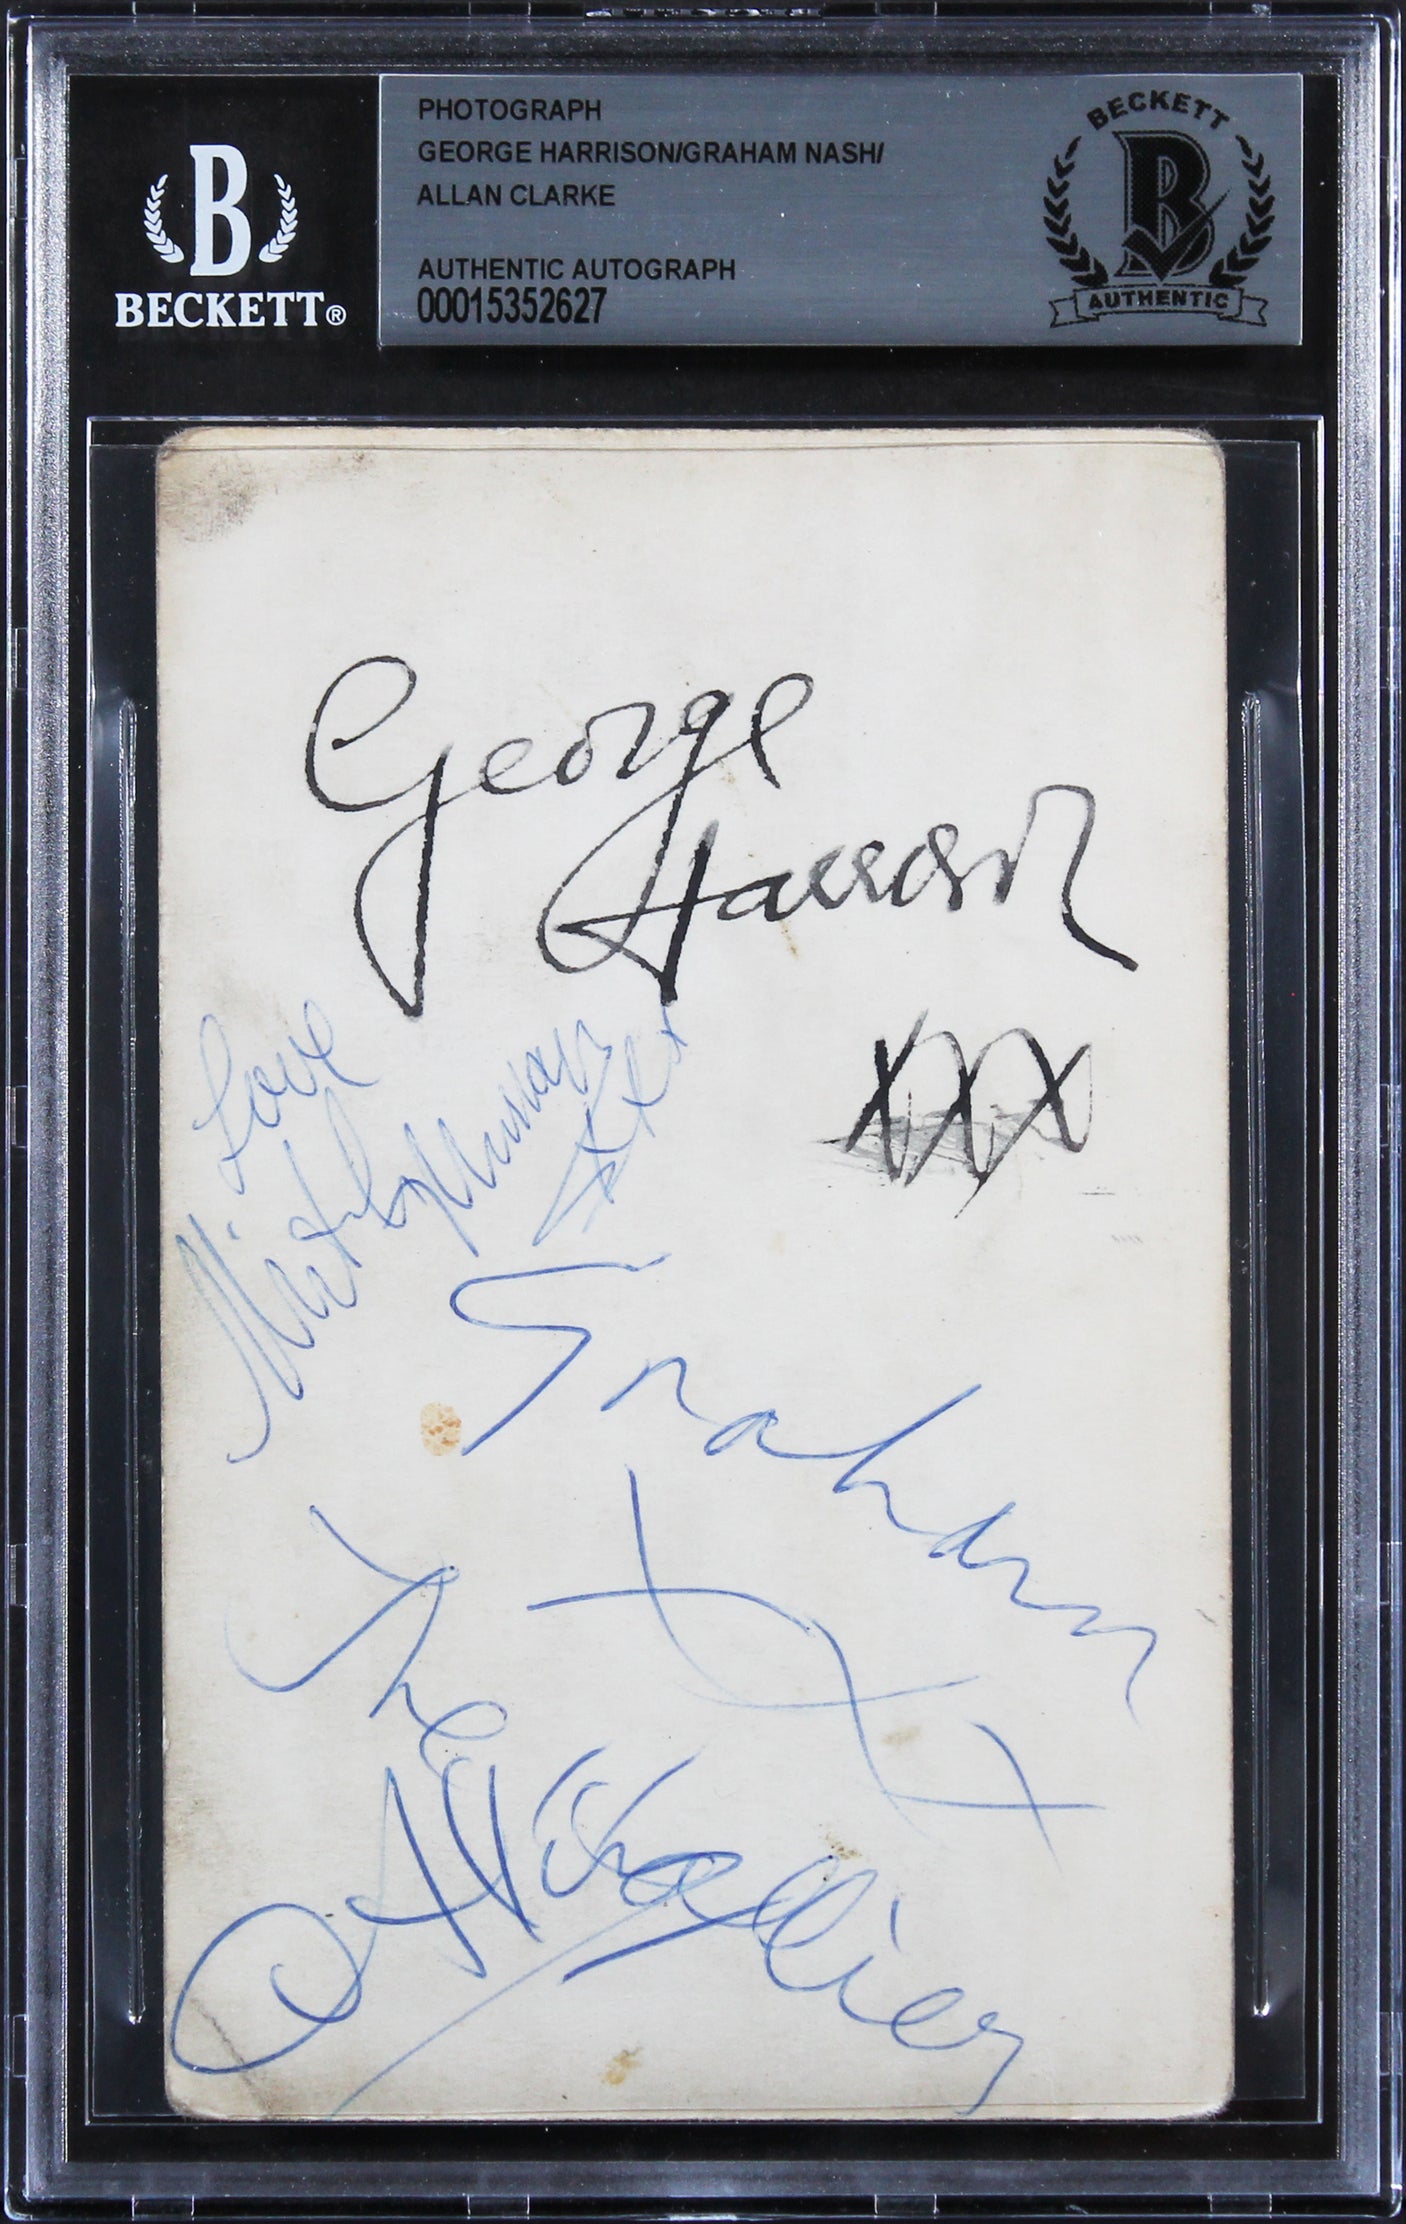 BECKETT
B
BECKETT®
PHOTOGRAPH
GEORGE HARRISON/GRAHAM NASH/
ALLAN CLARKE
AUTHENTIC AUTOGRAPH
00015352627
B
AUTHENTIC
George
Harrison
xxx
Love
xxx
Graham
xxx
The
Hollies